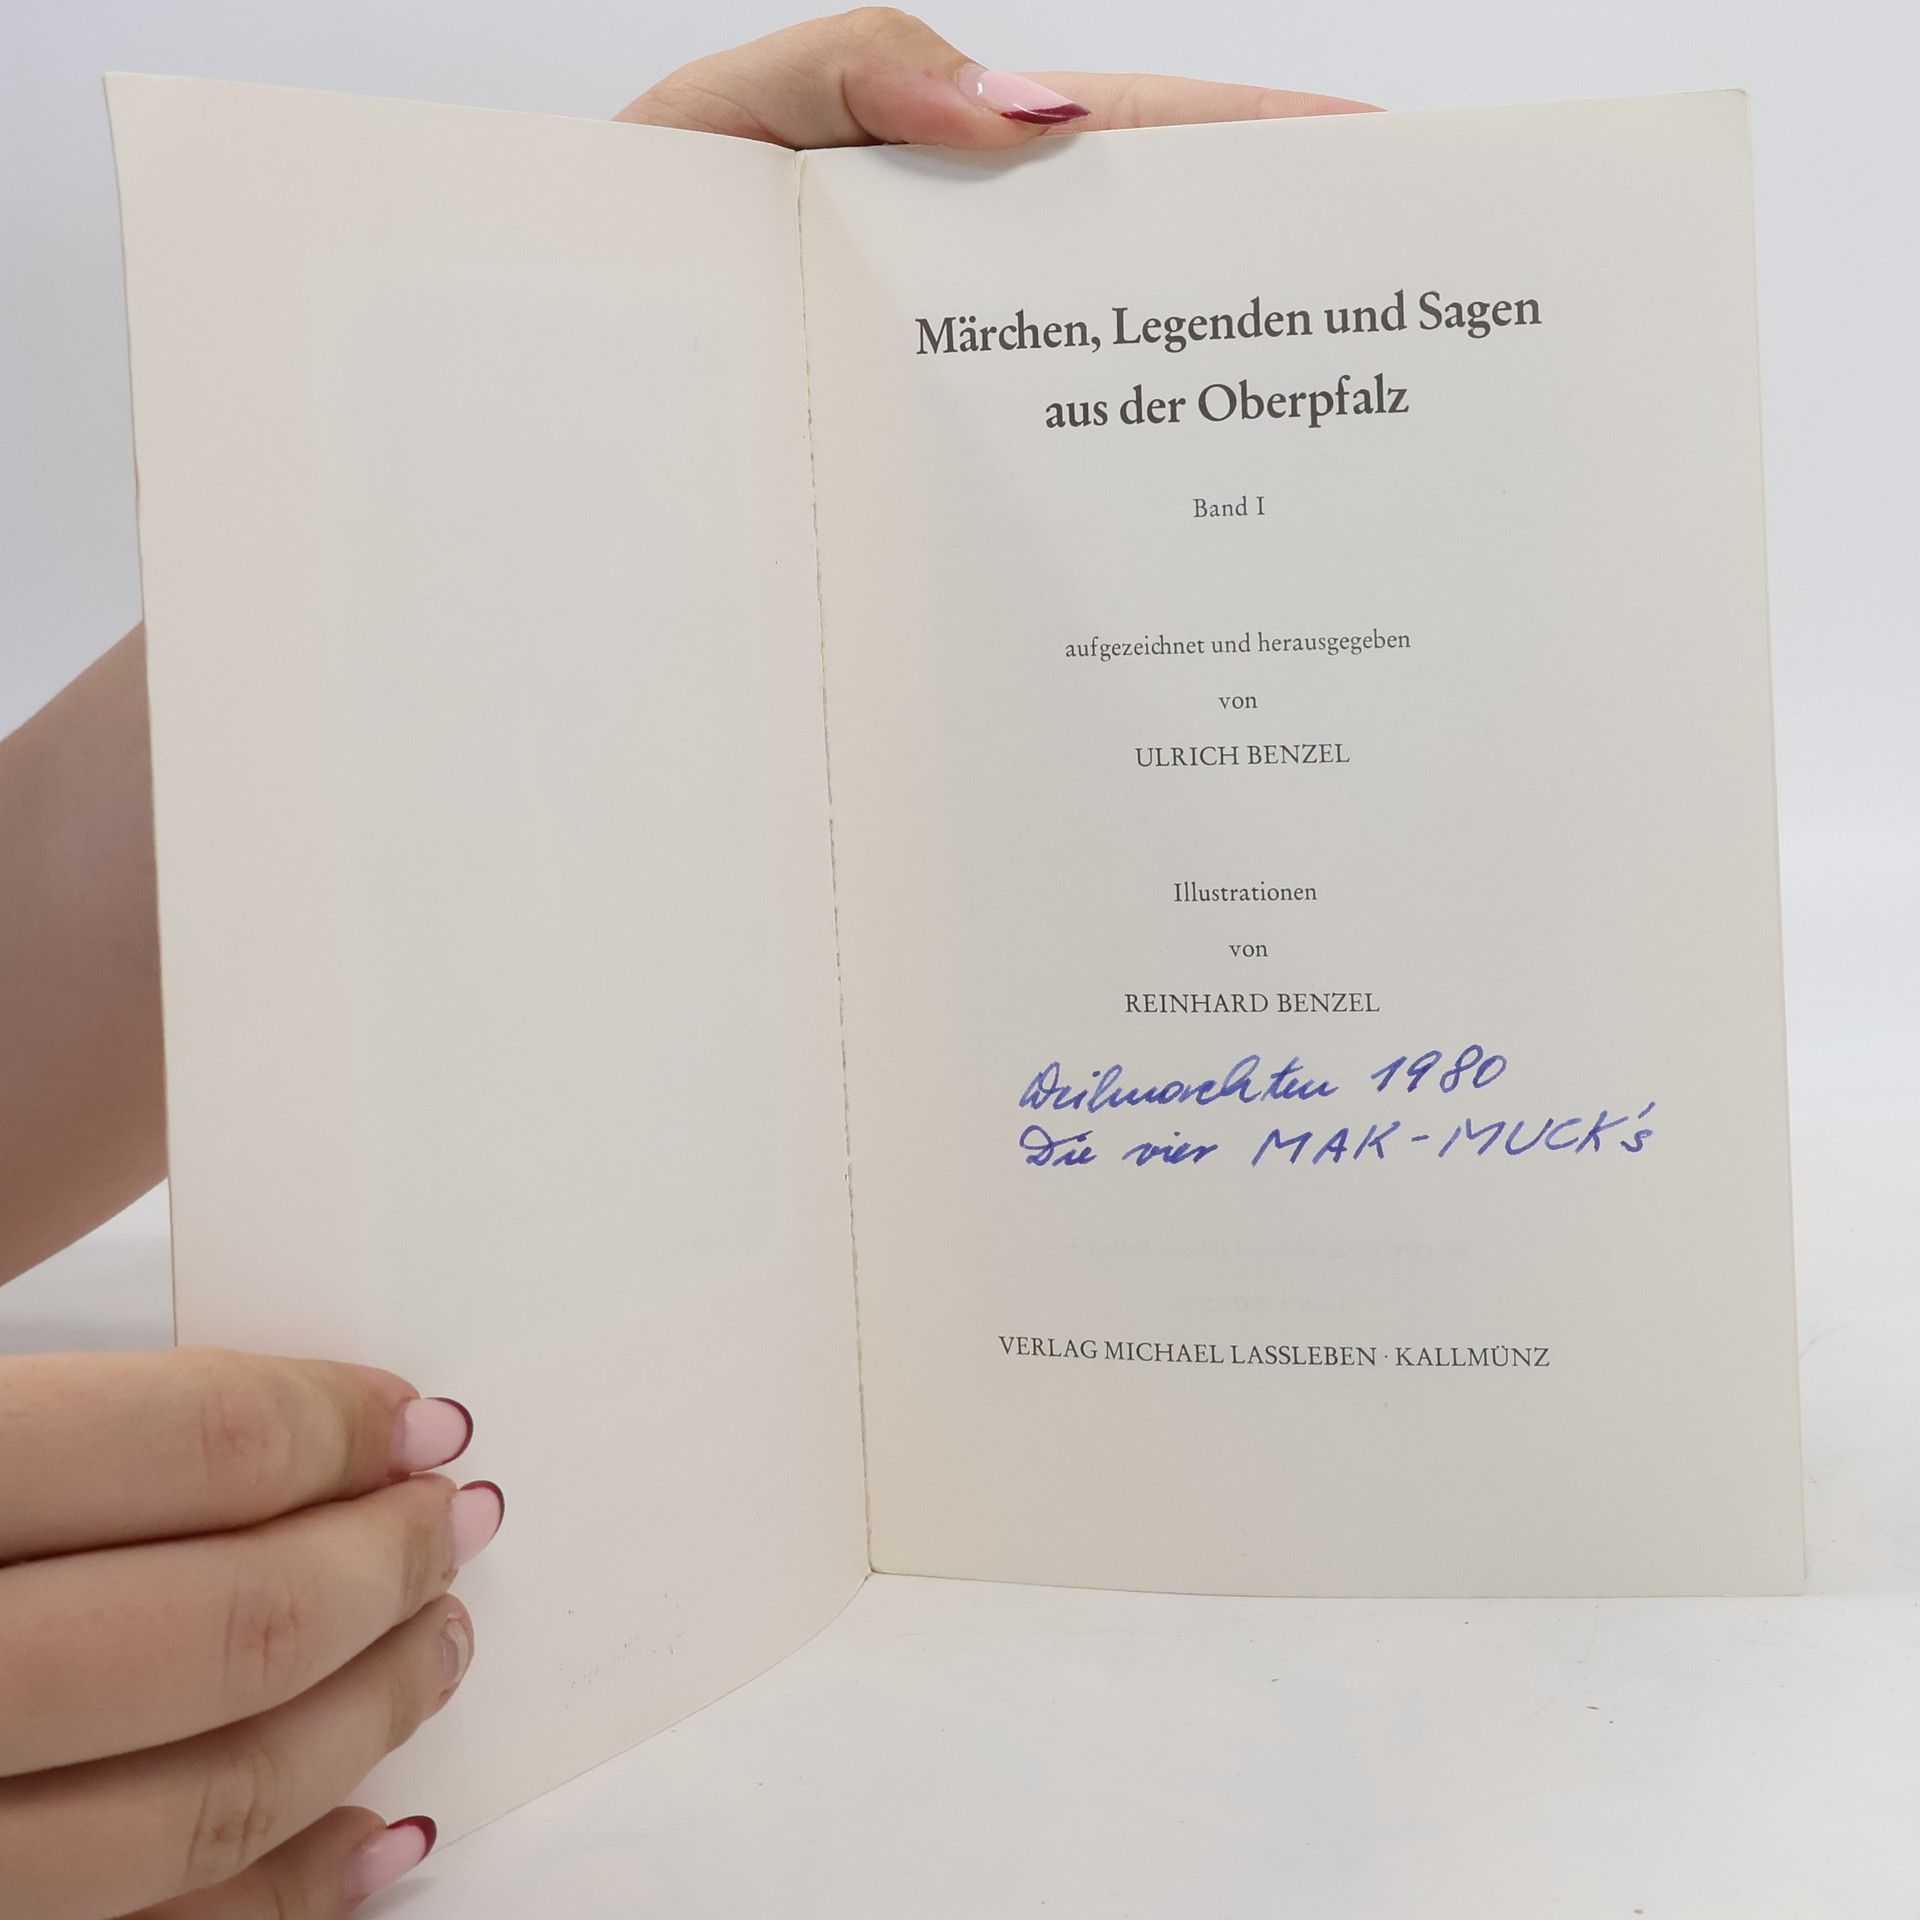 Märchen, Legenden und Sagen
aus der Oberpfalz
Band I
aufgezeichnet und herausgegeben
von
ULRICH BENZEL
Illustrationen
von
REINHARD BENZEL
Weihnachten 1980
Die vier MAK-MUCK's
VERLAG MICHAEL LASSLEBEN · KALLMÜNZ